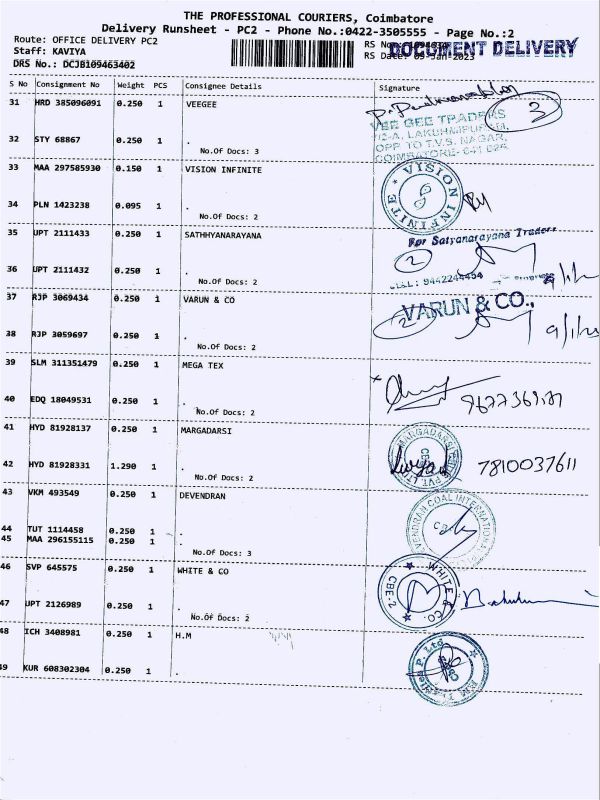 THE PROFESSIONAL COURIERS, Coimbatore
Delivery Runsheet - PC2 - Phone No.:0422-3505555 - Page No.:2
Route: OFFICE DELIVERY PC2
Staff: KAVIYA
DRS No.: DCJB109463402
RS Date: 09-Jan-2023
DOCUMENT DELIVERY
S No Consignment No Weight PCS Consignee Details Signature
31 HRD 385096091 0.250 1 VEEGEE
VEE GEE TRADERS
OPP TO T.V.S. NAGAR,
32 STY 68867 0.250 1 .
No.Of Docs: 3
33 MAA 297585930 0.150 1 VISION INFINITE
VISION INFINITE
34 PLN 1423238 0.095 1 .
No.Of Docs: 2
35 UPT 2111433 0.250 1 SATHHYANARAYANA
For Satyanarayana Traders
2
36 UPT 2111432 0.250 1 .
No.Of Docs: 2
37 RJP 3069434 0.250 1 VARUN & CO
VARUN & CO.,
2
38 RJP 3059697 0.250 1 .
No.Of Docs: 2
39 SLM 311351479 0.250 1 MEGA TEX
40 EDQ 18049531 0.250 1 .
No.Of Docs: 2
41 HYD 81928137 0.250 1 MARGADARSI
7810037611
42 HYD 81928331 1.290 1 .
No.Of Docs: 2
43 VKM 493549 0.250 1 DEVENDRAN
44 TUT 1114458 0.250 1
45 MAA 296155115 0.250 1 .
No.Of Docs: 3
46 SVP 645575 0.250 1 WHITE & CO
WHITE & CO. CBE-2
47 UPT 2126989 0.250 1 .
No.Of Docs: 2
48 ICH 3408981 0.250 1 H.M
49 KUR 608302304 0.250 1 .